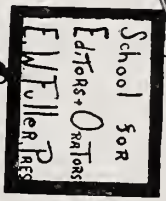 School for
Editors + Orators
E.W. Fuller, Pres